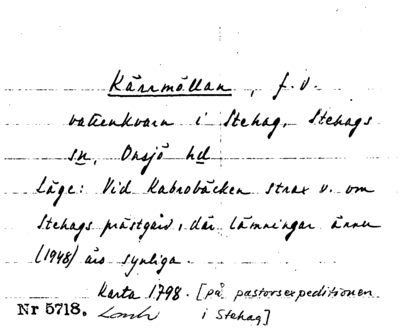 Kärrmöllan, f. v.
vattenkvarn i Stehag, Stehags
sn, Onsjö hd
Läge: Vid Kabrobäcken strax v. om
Stehags prästgård, där lämningar ännu
(1948) äro synliga.
Karta 1798. [på pastorsexpeditionen
Nr 5718. i Stehag]